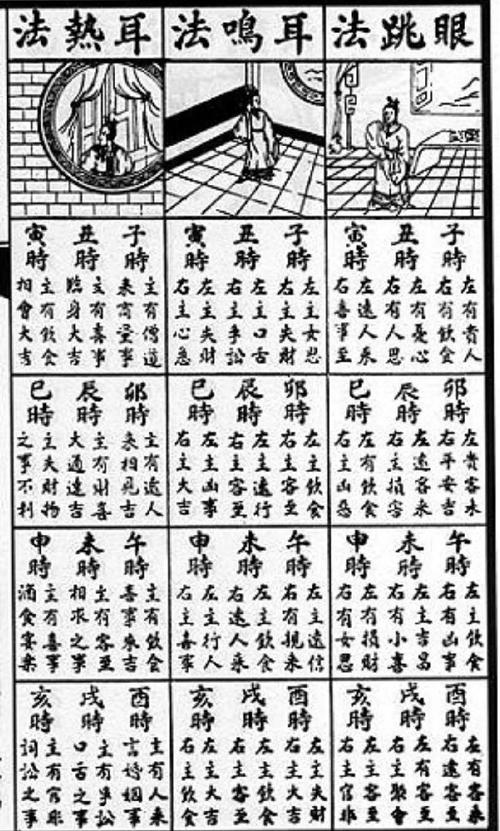 眼跳法
子時
左有貴人
右有飲食
丑時
左有憂心
右有人思
寅時
左遠人來
右喜事至
卯時
左貴客來
右平安吉
辰時
左遠客來
右主損害
巳時
左有飲食
右主凶惡
午時
左主飲食
右有凶事
未時
左主吉昌
右有小喜
申時
左有損財
右有女思
酉時
左有客來
右遠客至
戌時
左有客至
右主聚會
亥時
左主客至
右主官非
耳鳴法
子時
左主女思
右主失財
丑時
左主口舌
右主爭訟
寅時
左主失財
右主心急
卯時
左主飲食
右主客至
辰時
左主遠行
右主客至
巳時
左主凶事
右主大吉
午時
左主遠信
右有親來
未時
左主飲食
右遠人來
申時
左主行人
右主喜事
酉時
左主失財
右主大吉
戌時
左主飲食
右主客至
亥時
左主大吉
右主飲食
耳熱法
子時
主有僧道
來商量事
丑時
主有喜事
臨身大吉
寅時
主有飲食
相會大吉
卯時
主有遠人
來相見吉
辰時
主有財喜
大通達吉
巳時
主失財物
之事不利
午時
主有飲食
喜事來吉
未時
主有客至
相求之事
申時
主有喜事
酒食宴樂
酉時
主有人來
言婚姻事
戌時
主有爭訟
口舌之事
亥時
主有官非
詞訟之事